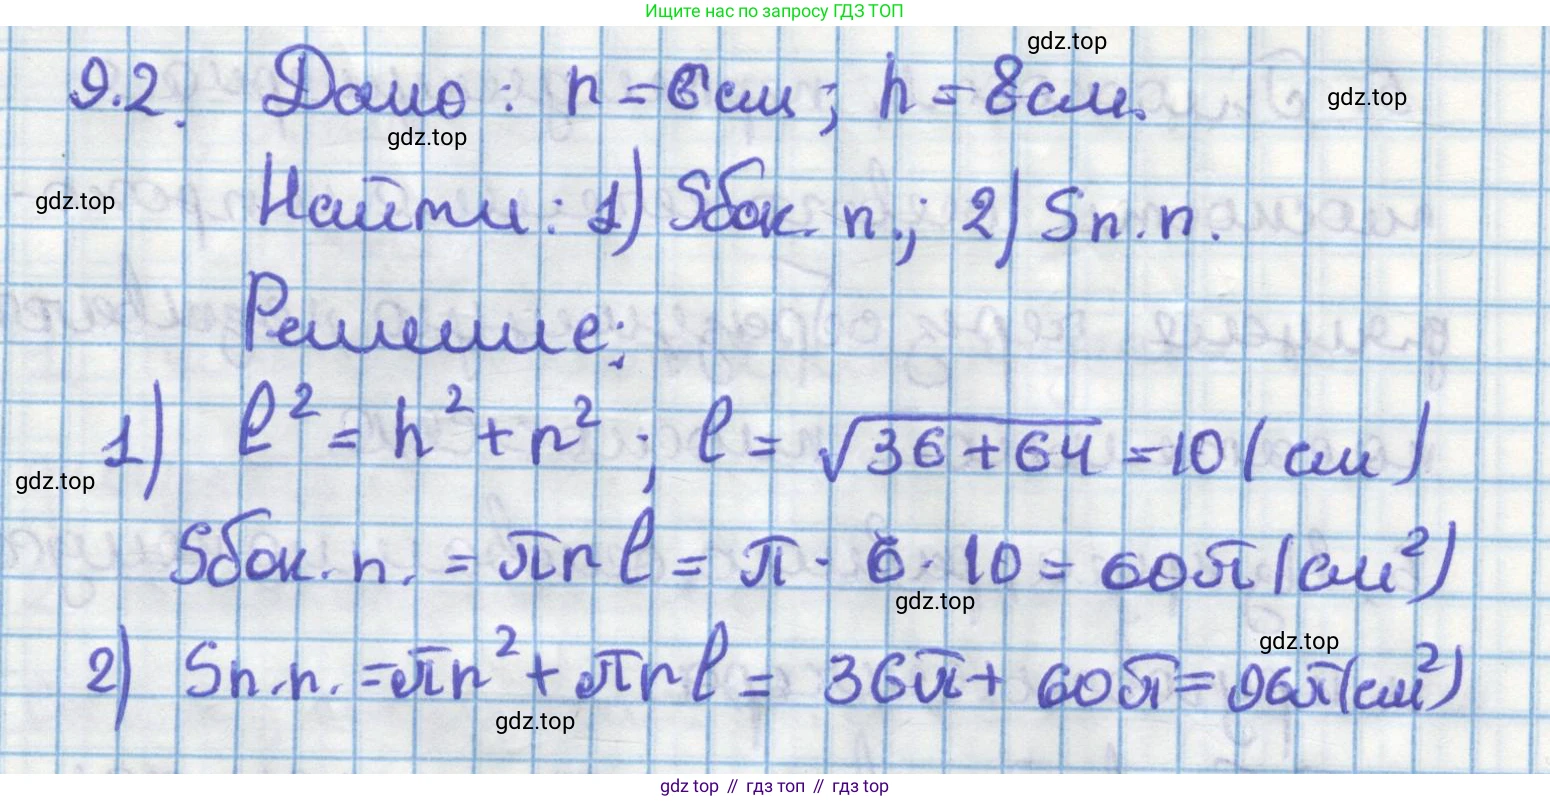 Ищите нас по запросу ГДЗ ТОП
gdz.top
9.2. Дано: r = 6 см; h = 8 см.
gdz.top
gdz.top
gdz.top
Найти: 1) Sбок. п.; 2) Sп.п.
Решение:
1) l² = h² + r²; l = √36+64 = 10 (см)
gdz.top
Sбок. п. = πrl = π · 6 · 10 = 60π (см²)
gdz.top
gdz.top
2) Sп.п. = πr² + πrl = 36π + 60π = 96π (см²)
gdz.top
gdz top // гдз топ // гдз top